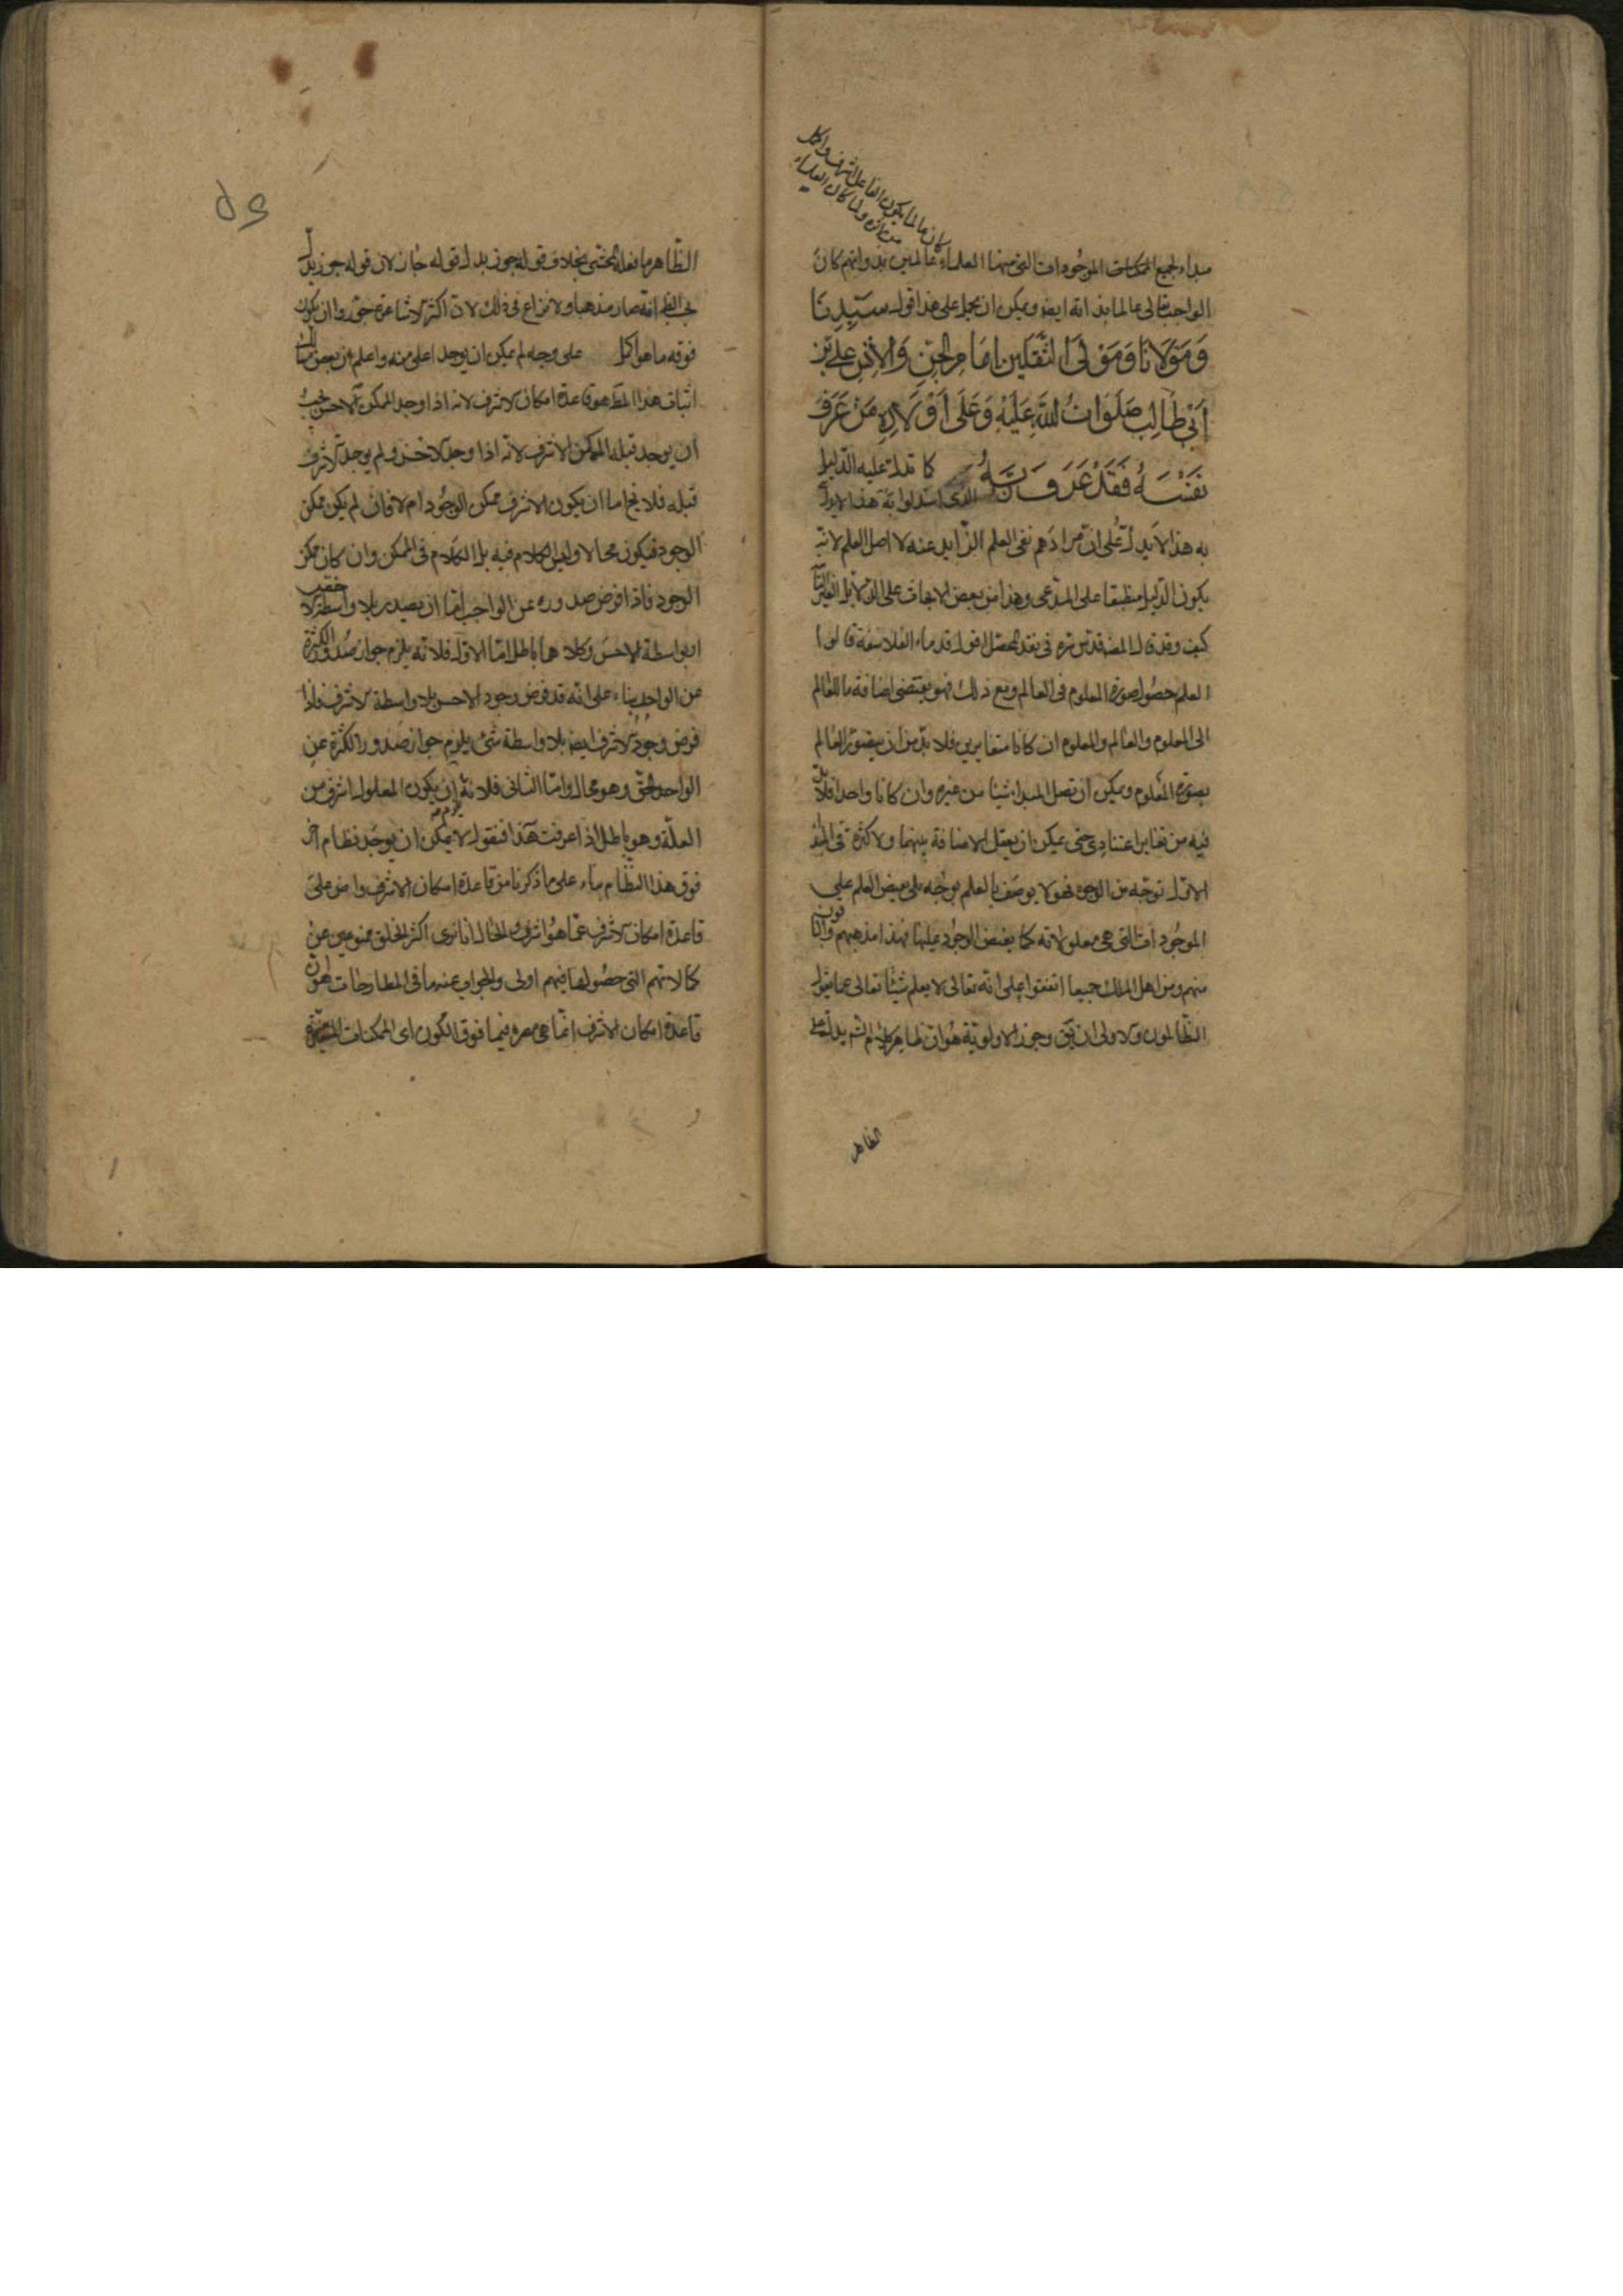 كان عالما يكون الفاعل اشرف واكمل
من اثره ولما كان العلماء
مبداء لجميع الممكنات الموجودات التي منها العلماء عالمين بذواتهم كان
الواجب تعالى عالما بذاته ايضا ويمكن ان يحمل على هذا قول سَيِّدِنَا
وَمَوْلَانَا وَمَوْلَى الثَّقَلَيْنِ اِمَامِ الجِنِّ وَالْاِنْسِ عَلِيِّ بْنِ
اَبِي طَالِبٍ صَلَوَاتُ اللَّهِ عَلَيْهِ وَعَلَى اَوْلَادِهِ مَنْ عَرَفَ
نَفْسَهُ فَقَدْ عَرَفَ رَبَّهُ كما تدل عليه الدليل
الذى استدلوا به هذا لا يدل
به هذا لا يدل على ان مرادهم نفى العلم الزايد عنه لا اصل العلم لانه
يكون الدليل منطبقا على المدعى وهذا من بعض الابحاث على
كيف وقد قال المص قدس سره فى نقد المحصل اقول قدماء الفلاسفة قالوا
العلم حصول صورة المعلوم فى العالم ومع ذلك فهو يقتضى اضافة ما للعالم
الى المعلوم والعالم والمعلوم ان كانا متغايرين فلا بد من ان يتصور العالم
بصورة المعلوم ويمكن ان تصل المبدا شيئا من غيره وان كانا واحدا فلا بد
فيه من تغاير اعتبارى حتى يمكن ان يعقل الاضافة بينهما ولا كثرة فى المبدأ
الاول بوجه من الوجوه فهو لا يوصف بالعلم بوجه بلى يفيض العلم على
الموجودات التى هى معلولاته كما يفيض الوجود عليها فهذا مذهبهم والباقون
منهم ومن اهل الملل جميعا اتفقوا على انه تعالى لا يعلم شيئا تعالى عما يقول
الظالمون والاولى ان وجه الاولوية هو ان ظاهر كلام يدل على
الظاهر
الظاهر ما نقله المحشى بخلاف قوله جوز بدل قوله جاز لان قوله جوز يدل
بحسب الظ انه صار مذهبا ولا نزاع فى ذلك لان اكثر الاشاعرة جوزوا ان يكون
فوقه ما هو اكمل على وجه لم يمكن ان يوجد اعلى منه واعلم ان بعض
اثبات هذا المط هو قاعدة امكان الاشرف لانه اذا وجد الممكن الاخس يجب
ان يوجد قبله الممكن الاشرف لانه اذا وجد الاخس ولم يوجد الاشرف
قبله فلا يخ اما ان يكون الاشرف ممكن الوجود ام لا فان لم يكن ممكن
الوجود فيكون محالا وليس الكلام فيه بل الكلام فى الممكن وان كان ممكن
الوجود فاذا فرض صدوره عن الواجب اما ان يصدر بلا واسطة
او بواسطة الاخس وكلاهما باطل اما الاول فلانه يلزم جواز صدور الكثرة
عن الواحد بناء على انه قد فرض وجود الاخس بلا واسطة الاشرف فاذا
فرض وجود الاشرف ايضا بلا واسطة شئ يلزم جواز صدور الكثرة عن
الواحد الحق وهو محال واما الثانى فلانه يلزم ان يكون المعلول اشرف من
العلة وهو باطل اذا عرفت هذا فنقول لا يمكن ان يوجد نظام اخر
فوق هذا النظام بناء على ما ذكرنا من قاعدة امكان الاشرف واعترض على
قاعدة امكان الاشرف عما هو اشرف والحال انا نرى اكثر الخلق ممنوعين عن
كمالاتهم التى حصولها فيهم اولى والجواب عنه ما فى المطارحات هو ان
قاعدة امكان الاشرف انما هى معتبرة فيما فوق الكون اى الممكنات